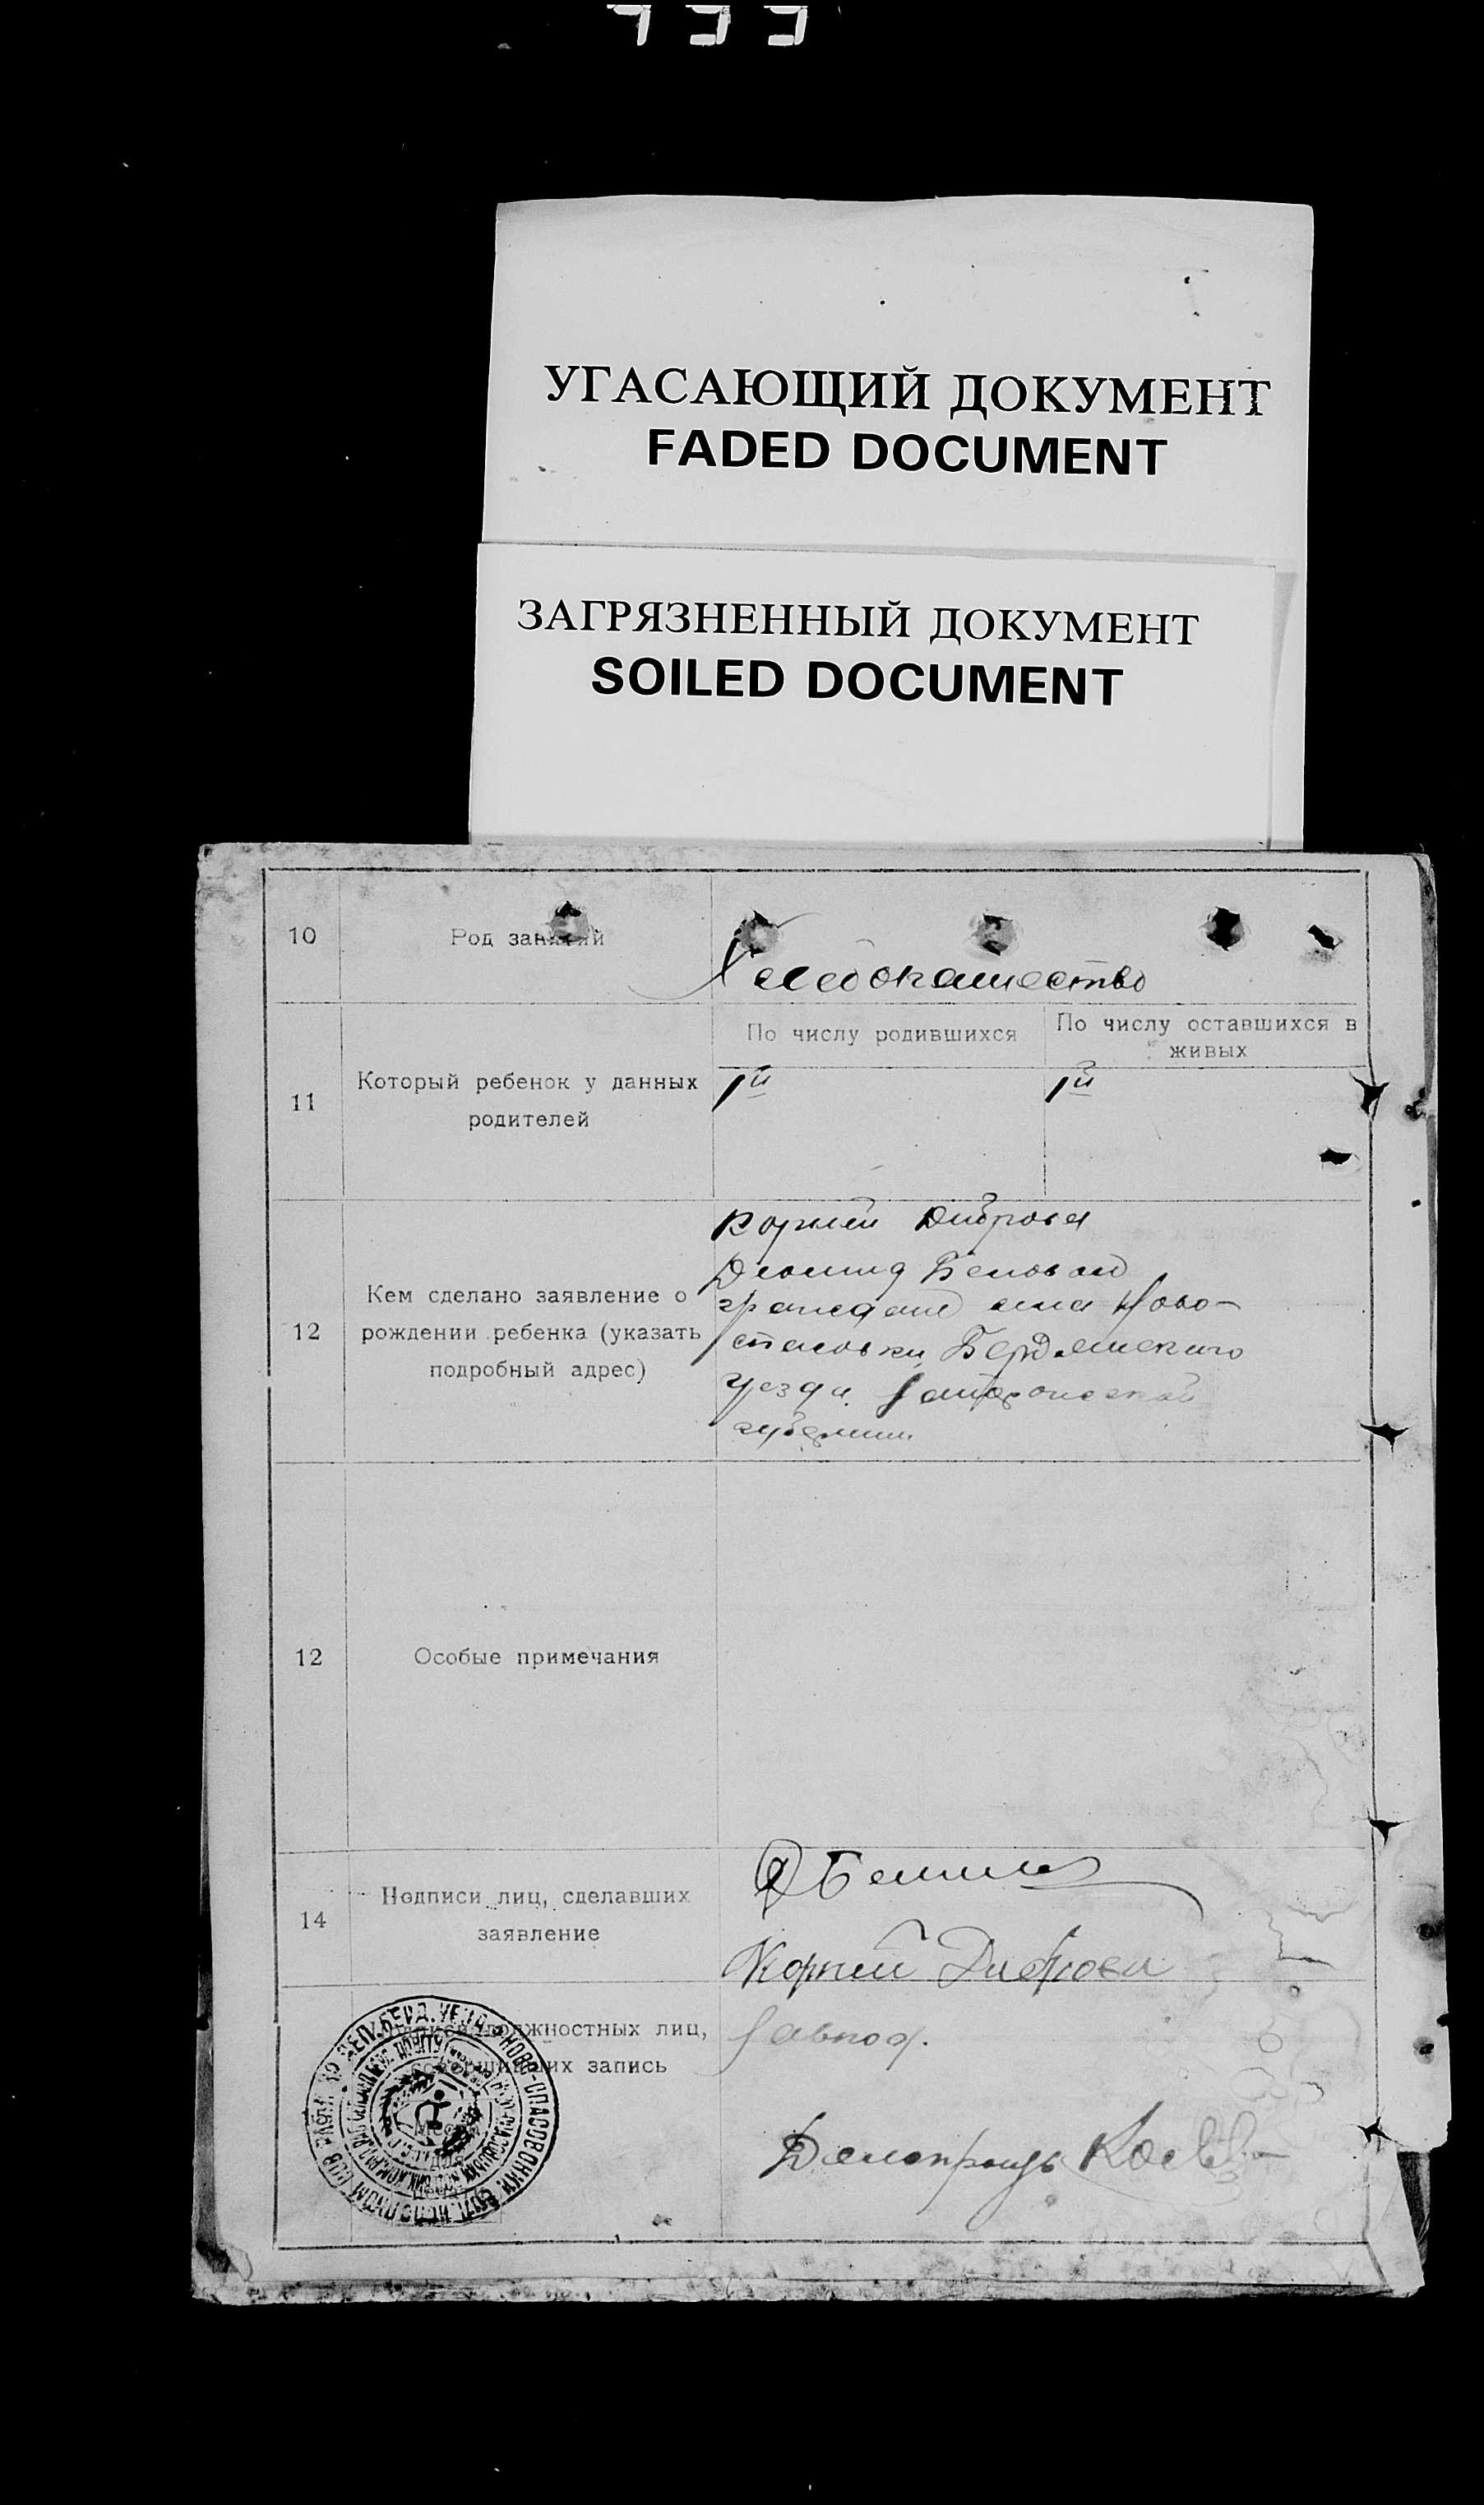 УГАСАЮЩИЙ ДОКУМЕНТ
FADED DOCUMENT
ЗАГРЯЗНЕННЫЙ ДОКУМЕНТ
SOILED DOCUMENT
10 Род занятий
Хлебопашество
11 Который ребенок у данных
родителей
По числу родившихся
По числу оставшихся в
живых
1й
1й
12 Кем сделано заявление о
рождении ребенка (указать
подробный адрес)
Корней Диброва
граждане села Ново-
спасовки Бердянского
уезда
губернии
12 Особые примечания
14 Подписи лиц, сделавших
заявление
Корней Диброва
должностных лиц,
запись
Завпод.
Делопроизв